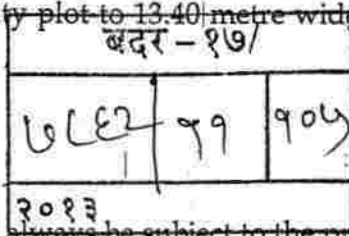 ty plot to 13.40 metre wide
बदर - १७/
७८६२ ११ १०५
२०१३
always be subject to the pr